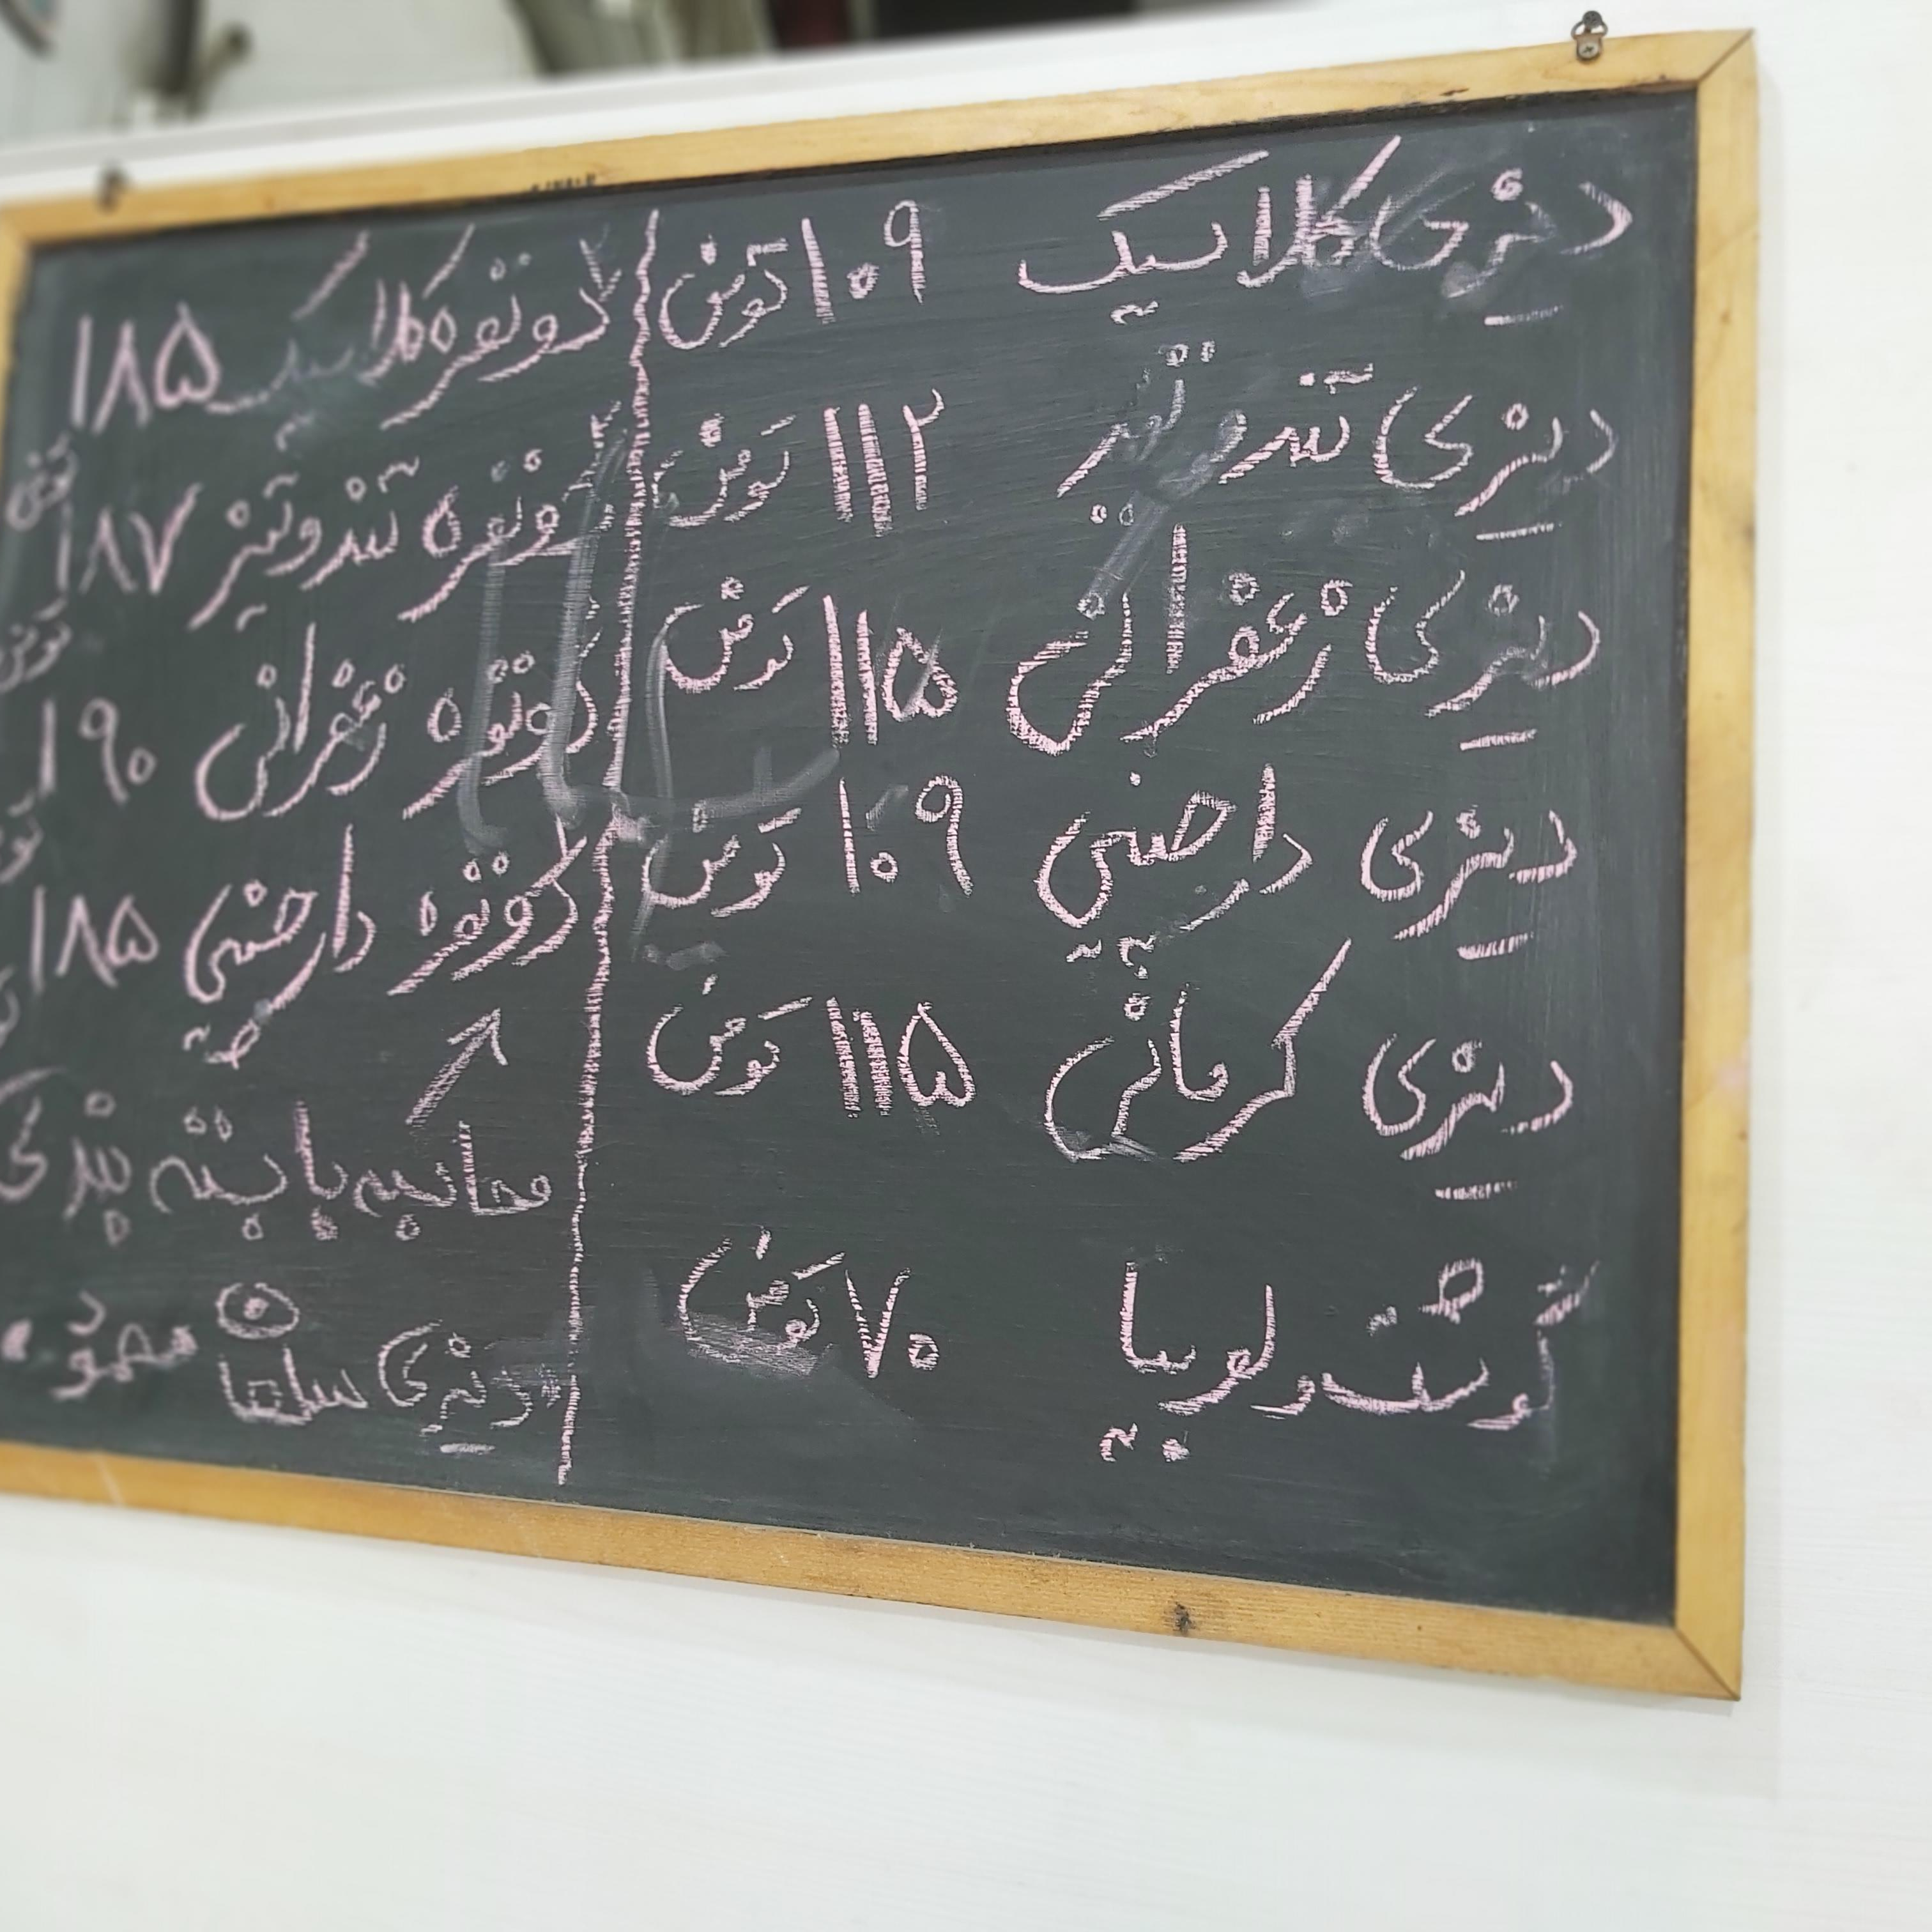 دیزی کلاسیک ۱۰۹ تومن
دیزی تند و تیز ۱۱۲ تومن
دیزی زعفرانی ۱۱۵ تومن
دیزی دارچینی ۱۰۹ تومن
دیزی کرمانی ۱۱۵ تومن
گوشت و لوبیا ۷۰ تومن
دو نفره کلاسیک ۱۸۵
تومن
دو نفره تند و تیز ۱۸۷
تومن
دو نفره زعفرانی ۱۹۰
دو نفره دارچینی ۱۸۵
محاسبه با بسته بندی
دیزی سلفان